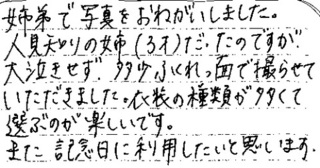 姉弟で写真をおねがいしました。
人見知りの姉(3才)だったのですが
大泣きせず 多少ふくれっ面で撮らせて
いただきました。衣装の種類が多くて
選ぶのが楽しいです。
また 記念日に利用したいと思います.